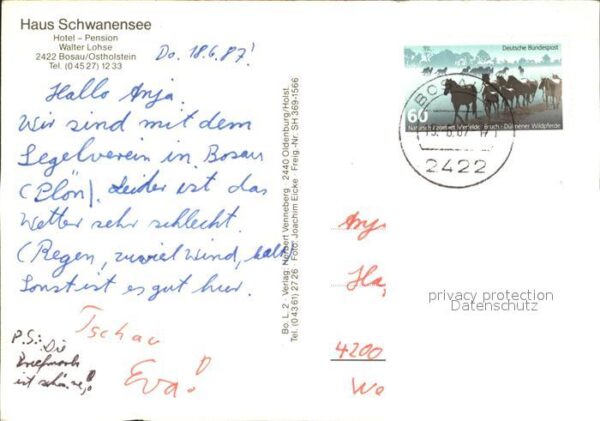 Haus Schwanensee
Hotel - Pension
Walter Lohse
2422 Bosau/Ostholstein
Tel. (0 45 27) 12 33
Do. 18.6.87!
Hallo Anja.
Wir sind mit dem
Segelverein in Bosau
(Plön). Leider ist das
Wetter sehr schlecht.
(Regen, zuviel Wind, kalt
Sonst ist es gut hier.
Tschau
Eva!
P.S.: Die
Briefmark
ist schön e!
Bo. L. 2 . Verlag: Herbert Venneberg · 2440 Oldenburg/Holst.
Tel. (0 43 61) 27 26 · Foto: Joachim Eicke · Freig.-Nr. SH 369-1566
Deutsche Bundespost
60
Wildpferde
BOSAU
2422
Anj
Ha,
4200
We
privacy protection
Datenschutz